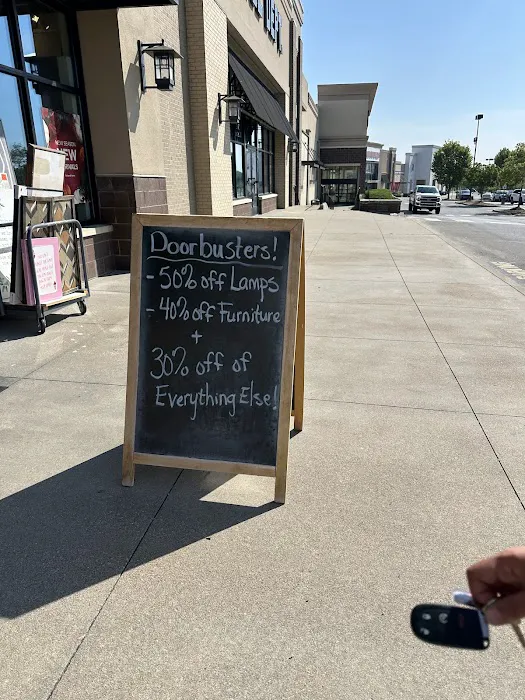 Doorbusters!
- 50% off Lamps
- 40% off Furniture
+
30% off of
Everything Else!
NEW